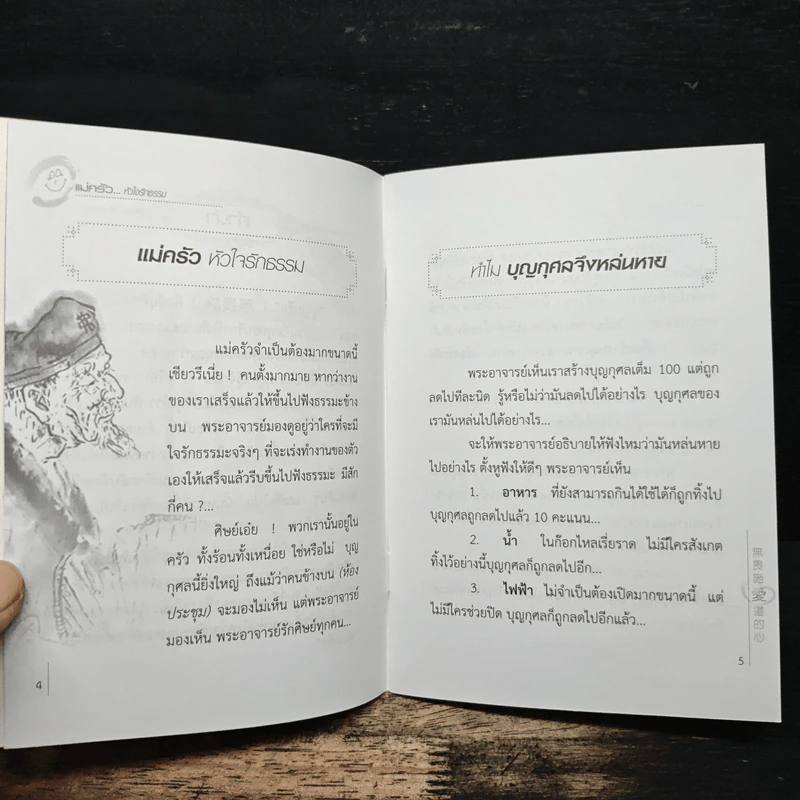 แม่ครัว... หัวใจรักธรรม
แม่ครัว หัวใจรักธรรม
แม่ครัวจำเป็นต้องมากขนาดนี้
เชียวรึเนี่ย ! คนตั้งมากมาย หากว่างาน
ของเราเสร็จแล้วให้ขึ้นไปฟังธรรมะข้าง
บน พระอาจารย์มองดูอยู่ว่าใครที่จะมี
ใจรักธรรมะจริงๆ ที่จะเร่งทำงานของตัว
เองให้เสร็จแล้วรีบขึ้นไปฟังธรรมะ มีสัก
กี่คน ?...
ศิษย์เอ๋ย ! พวกเรานั้นอยู่ใน
ครัว ทั้งร้อนทั้งเหนื่อย ใช่หรือไม่ บุญ
กุศลนี้ยิ่งใหญ่ ถึงแม้ว่าคนข้างบน (ห้อง
ประชุม) จะมองไม่เห็น แต่พระอาจารย์
มองเห็น พระอาจารย์รักศิษย์ทุกคน...
4
ทำไม บุญกุศลจึงหล่นหาย
พระอาจารย์เห็นเราสร้างบุญกุศลเต็ม 100 แต่ถูก
ลดไปทีละนิด รู้หรือไม่ว่ามันลดไปได้อย่างไร บุญกุศลของ
เรามันหล่นไปได้อย่างไร...
จะให้พระอาจารย์อธิบายให้ฟังไหมว่ามันหล่นหาย
ไปอย่างไร ตั้งหูฟังให้ดีๆ พระอาจารย์เห็น
1. อาหาร ที่ยังสามารถกินได้ใช้ได้ก็ถูกทิ้งไป
บุญกุศลถูกลดไปแล้ว 10 คะแนน...
2. น้ำ ในก๊อกไหลเรี่ยราด ไม่มีใครสังเกต
ทิ้งไว้อย่างนี้บุญกุศลก็ถูกลดไปอีก...
3. ไฟฟ้า ไม่จำเป็นต้องเปิดมากขนาดนี้ แต่
ไม่มีใครช่วยปิด บุญกุศลก็ถูกลดไปอีกแล้ว...
愛道的心
5